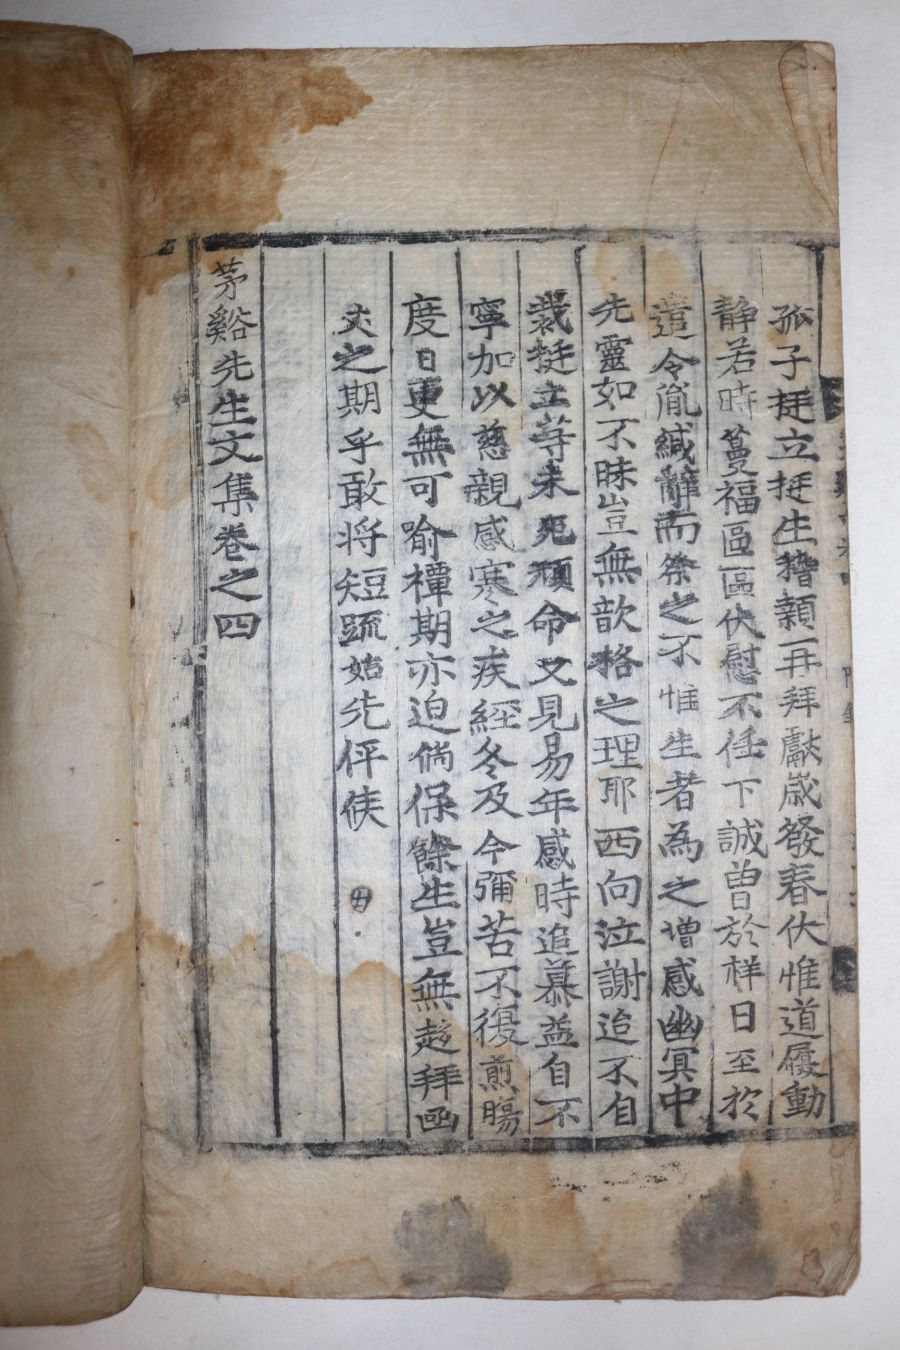 孤子挺立挺生稽顙再拜獻歲發春伏惟道履動
靜若時蔓福區區伏慰不任下誠曾於祥日至於
遣令胤緘辭而祭之不惟生者為之增感幽冥中
先靈如不昧豈無歆格之理耶西向泣謝迨不自
裁挺立等未死頑命又見易年感時追慕益自不
寧加以慈親感寒之疾經冬及今彌苦不復煎暘
度日更無可喻禫期亦迫倘保餘生豈無趍拜函
丈之期乎敢將短疏始先伻候
茅谿先生文集卷之四